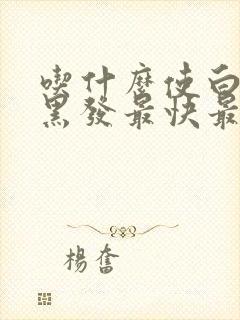 喫什麼使白
黑發最快最
楊奮